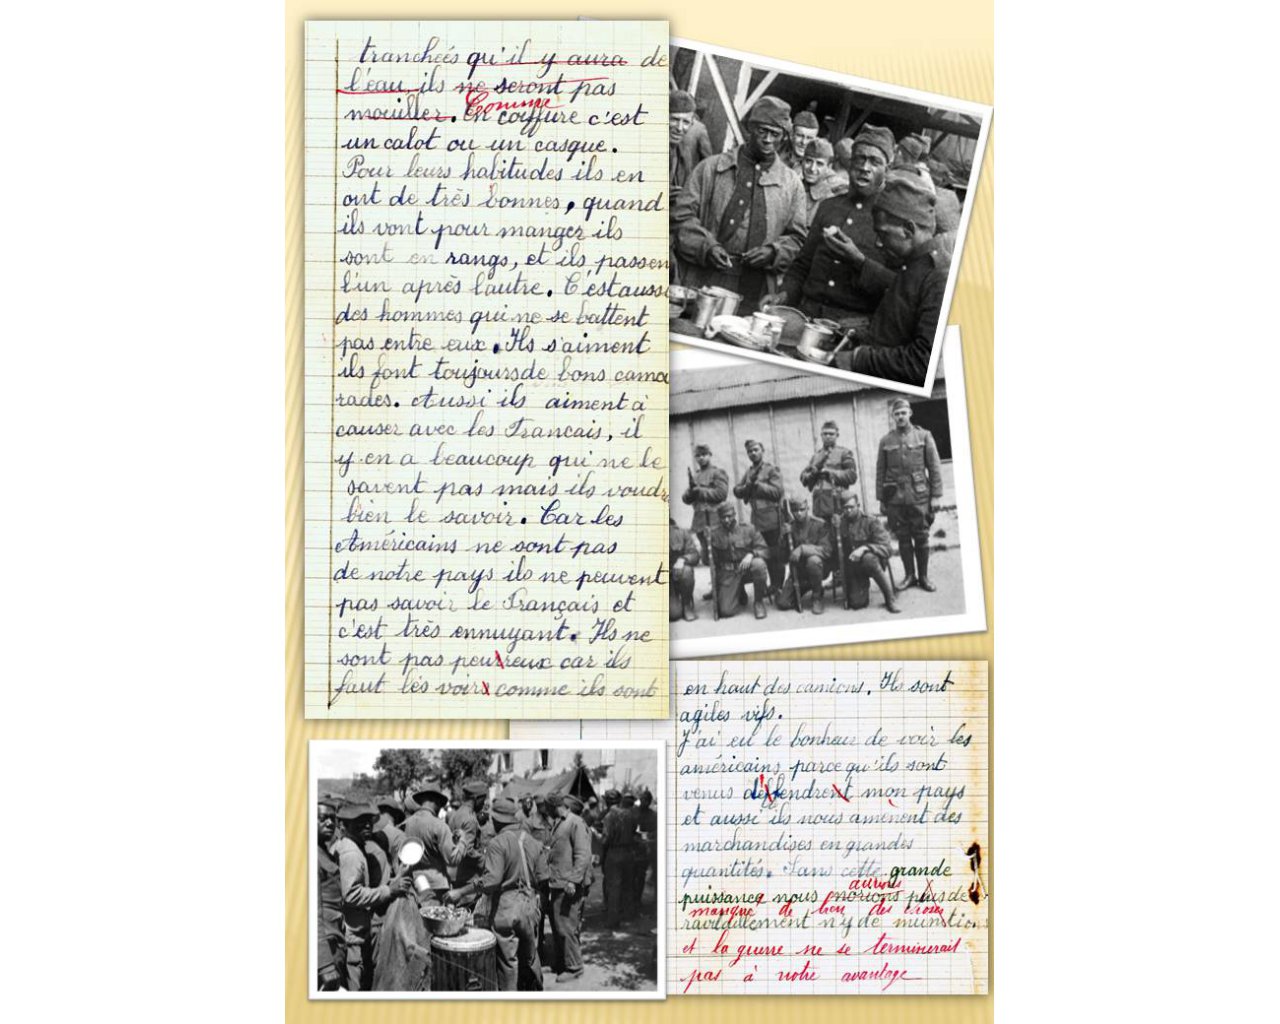 tranchées qu'il y aura de
l'eau, ils ne seront pas
mouiller. En coiffure c'est
Comme
un calot ou un casque.
Pour leurs habitudes ils en
ont de très bonnes, quand
ils vont pour manger ils
sont en rangs, et ils passen
l'un après l'autre. C'est aussi
des hommes qui ne se battent
pas entre eux. Ils s'aiment
ils font toujours de bons cama
rades. Aussi ils aiment à
causer avec les Francais, il
y en a beaucoup qui ne le
savent pas mais ils voudr
bien le savoir. Car les
Américains ne sont pas
de notre pays ils ne peuvent
pas savoir le Français et
c'est très ennuyant. Ils ne
sont pas peurreux car ils
faut les voirs comme ils sont
en haut des camions. Ils sont
agiles vifs.
J'ai eu le bonheur de voir les
américains parce qu'ils sont
venus déffendrent mon pays
et aussi ils nous amènent des
marchandises en grandes
quantités. Sans cette grande
aurions
puissance nous de
manqué de bien des choses
ravitaillement n'y de munitions
et la guerre ne se terminerait
pas à notre avantage